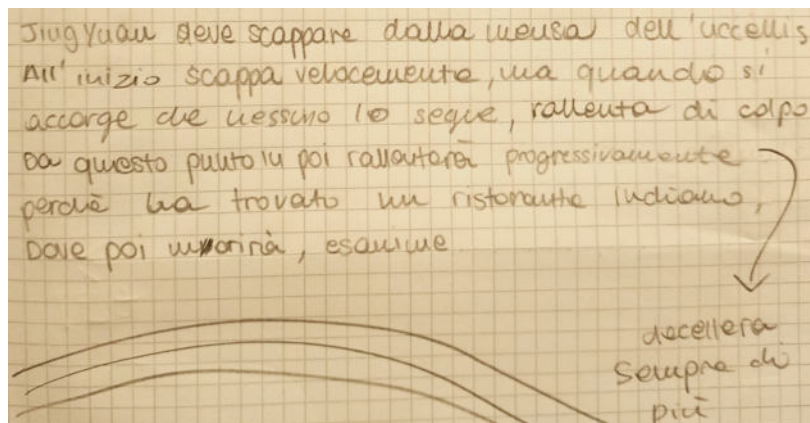 JingYuan deve scappare dalla mensa dell'uccellis
All'inizio scappa velocemente, ma quando si
accorge che nessuno lo segue, rallenta di colpo
Da questo punto in poi rallenterà progressivamente
perchè ha trovato un ristorante indiano,
Dove poi morirà, esanime
decellera
sempre di
più